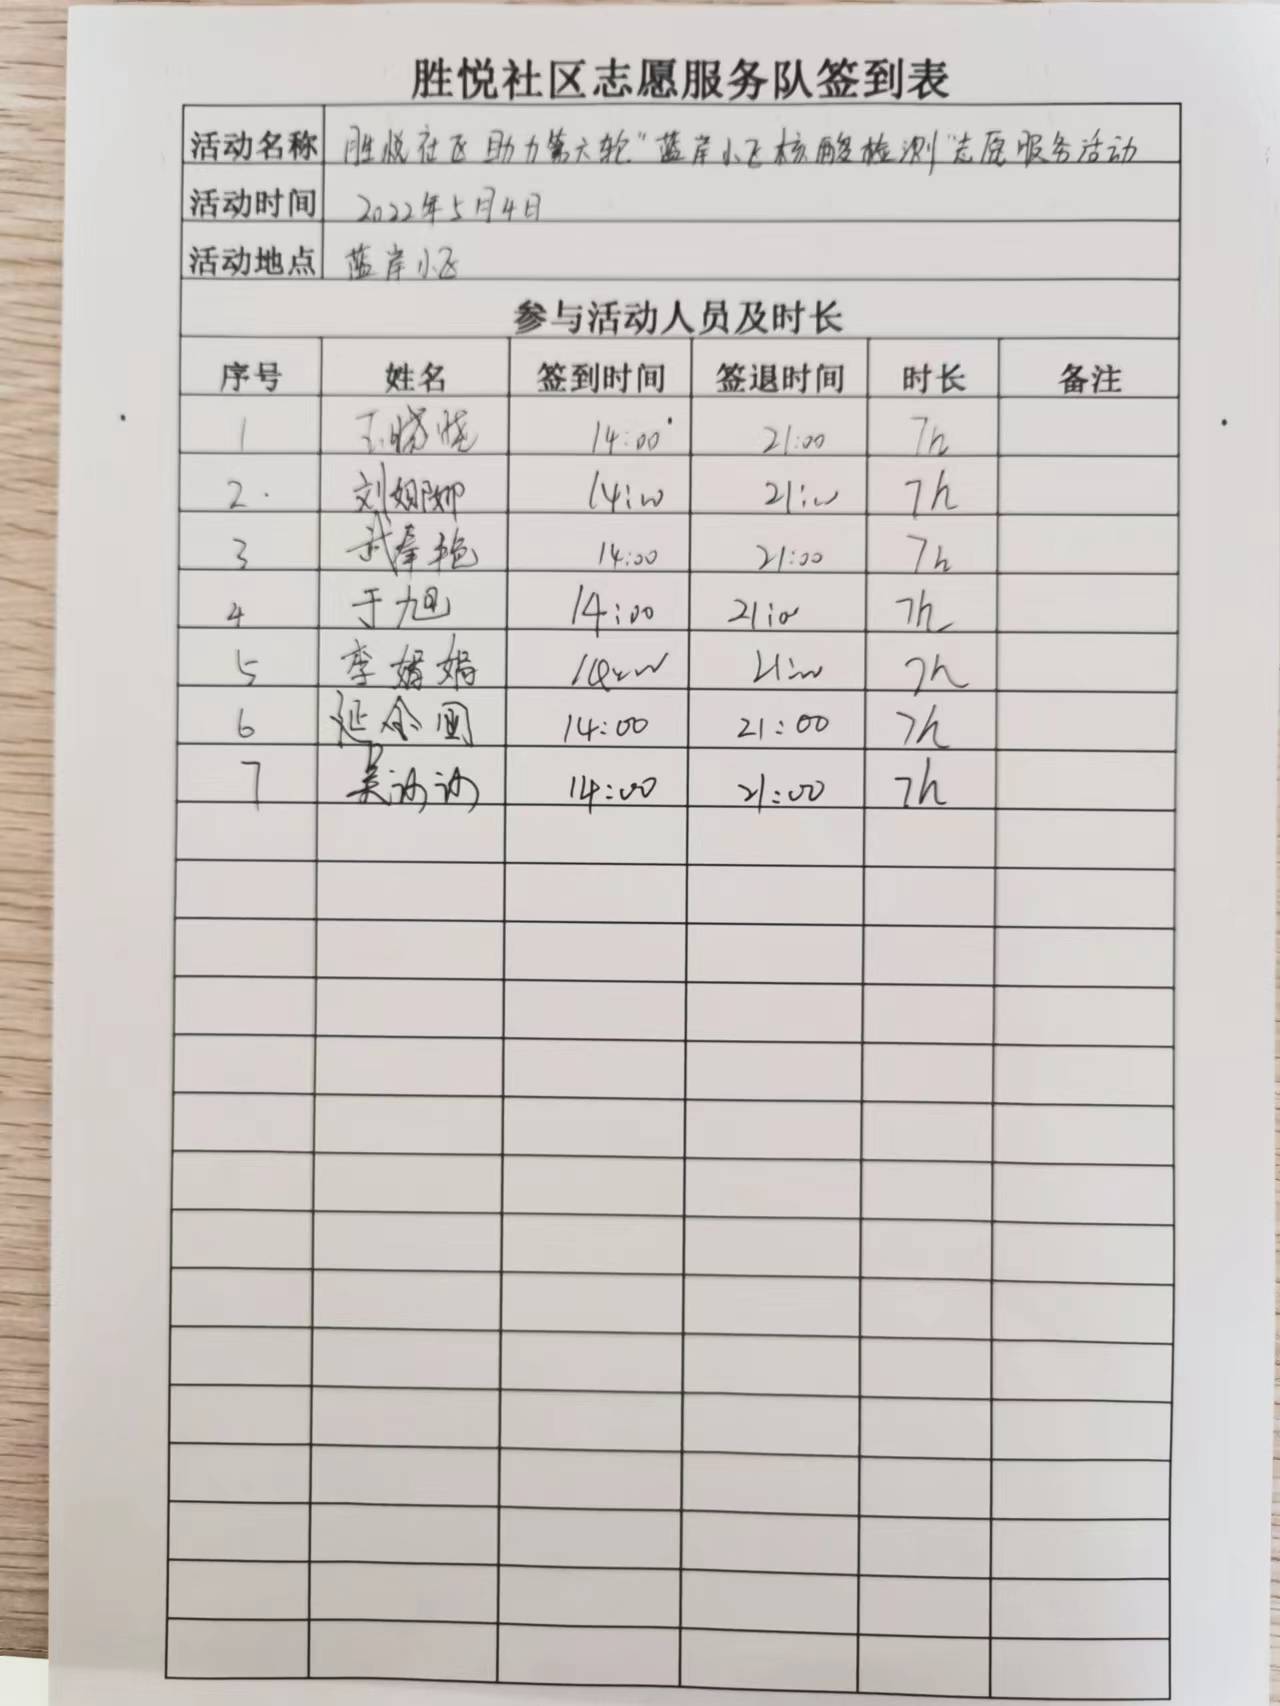 胜悦社区志愿服务队签到表
活动名称 胜悦社区助力第六轮"蓝岸小区核酸检测"志愿服务活动
活动时间 2022年5月4日
活动地点 蓝岸小区
参与活动人员及时长
序号 姓名 签到时间 签退时间 时长 备注
1 王晓晓 14:00 21:00 7h
2. 刘娜娜 14:00 21:00 7h
3 武春艳 14:00 21:00 7h
4 于旭 14:00 21:00 7h
5 李娟娟 14:00 21:00 7h
6 延 国 14:00 21:00 7h
7 吴汹汹 14:00 21:00 7h